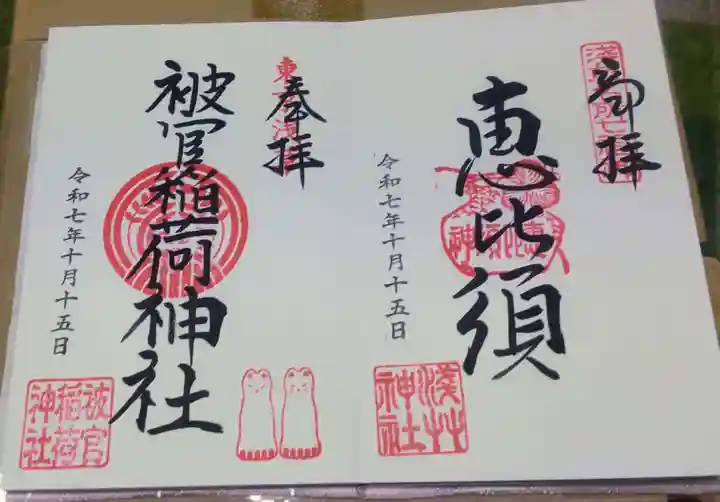 奉拝
恵比須
令和七年十月十五日
浅草
神社
奉拝
東京浅草
被官稲荷神社
令和七年十月十五日
被官
稲荷
神社